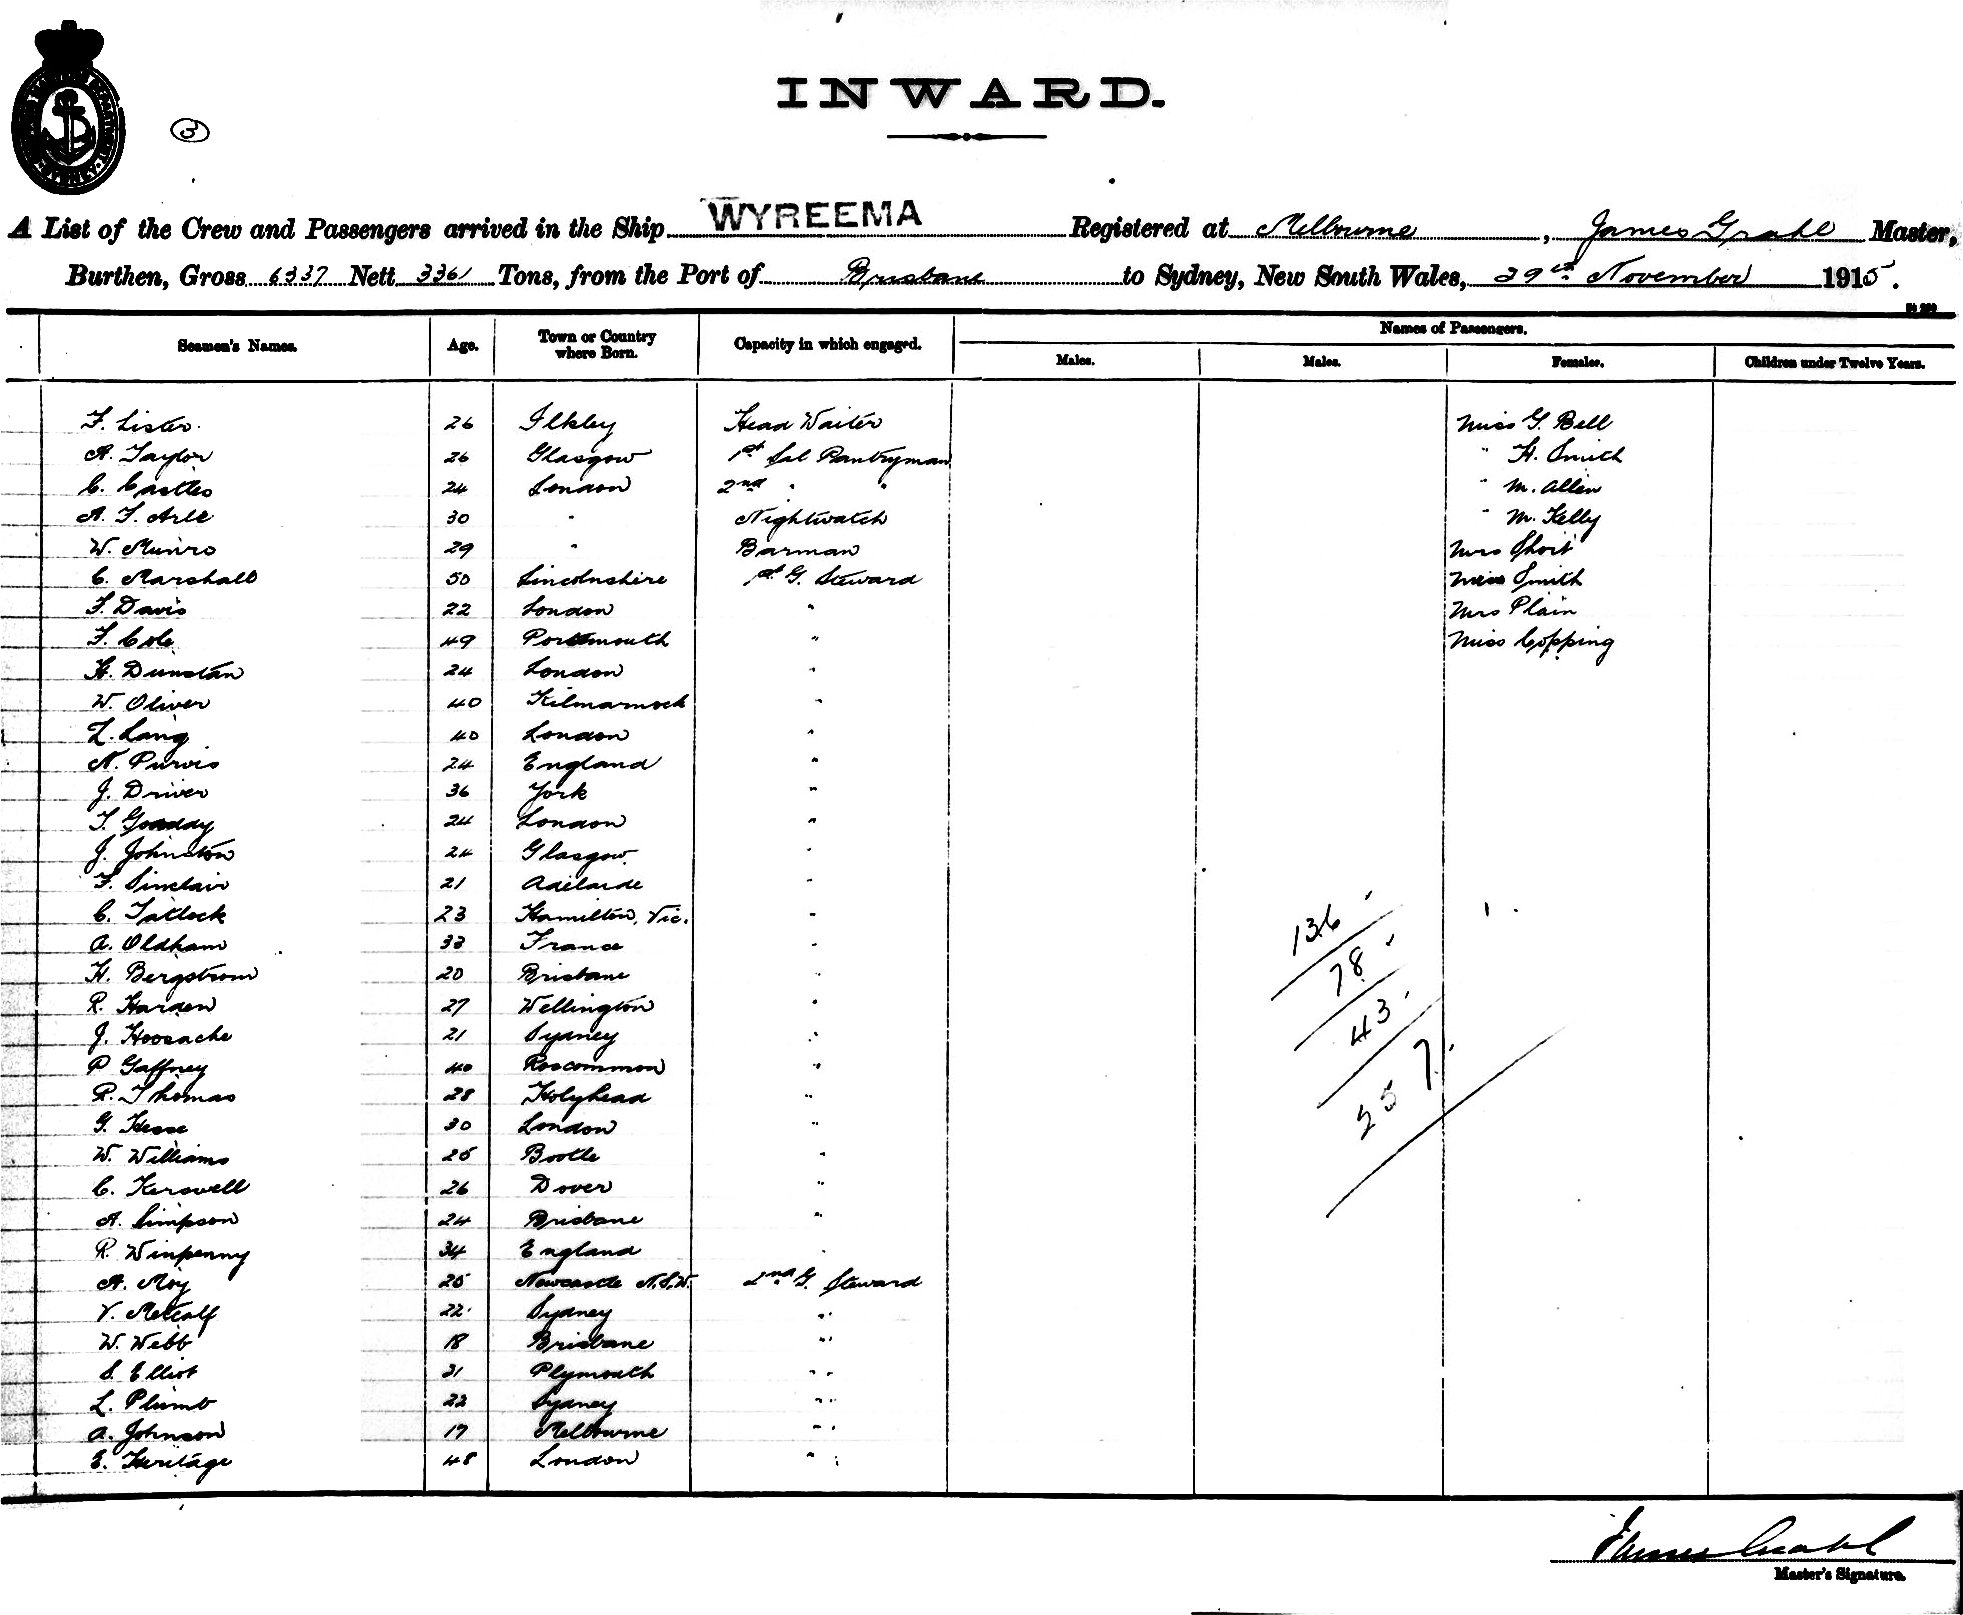 3
INWARD.
A List of the Crew and Passengers arrived in the Ship WYREEMA Registered at Melbourne, James Grahl Master,
Burthen, Gross 6337 Nett 3361 Tons, from the Port of Brisbane to Sydney, New South Wales, 29th November 1915.
Names of Passengers.
Seamen's Names. Age. Town or Country where Born. Capacity in which engaged. Males. Males. Females. Children under Twelve Years.
F. Lister 26 Ilkley Head Waiter Miss G. Bell
A. Taylor 26 Glasgow 1st Sal Pantryman " H. Smith
C. Castles 24 London 2nd " " " M. Allen
A. J. Arle 30 " Nightwatch " M. Kelly
W. Munro 29 " Barman Mrs Short
C. Marshall 50 Lincolnshire 1st G. Steward Miss Smith
F. Davis 22 London " Mrs Plain
F. Cole 49 Portsmouth " Miss Copping
H. Dunstan 24 London "
W. Oliver 40 Kilmarnock "
L. Lang 40 London "
N. Purvis 24 England "
J. Driver 36 York "
T. Goaddy 24 London "
J. Johnston 24 Glasgow "
F. Sinclair 21 Adelaide "
C. Tatlock 23 Hamilton, Vic. "
A. Oldham 33 France "
H. Bergstrom 20 Brisbane "
R. Harden 27 Wellington "
J. Hoosache 21 Sydney "
P Gaffney 40 Roscommon "
R. Thomas 28 Holyhead "
G. Hesse 30 London "
W. Williams 25 Bootle "
C. Kerswell 26 Dover "
A. Simpson 24 Brisbane "
R. Winpenny 34 England "
A. Moy 25 Newcastle N.S.W. 2nd G. Steward
V. Metcalf 22 Sydney " "
W. Webb 18 Brisbane " "
S. Elliot 31 Plymouth " "
L. Plumb 22 Sydney " "
A. Johnson 17 Melbourne " "
E. Heritage 48 London " "
136
78
43
257
James Grahl
Master's Signature.